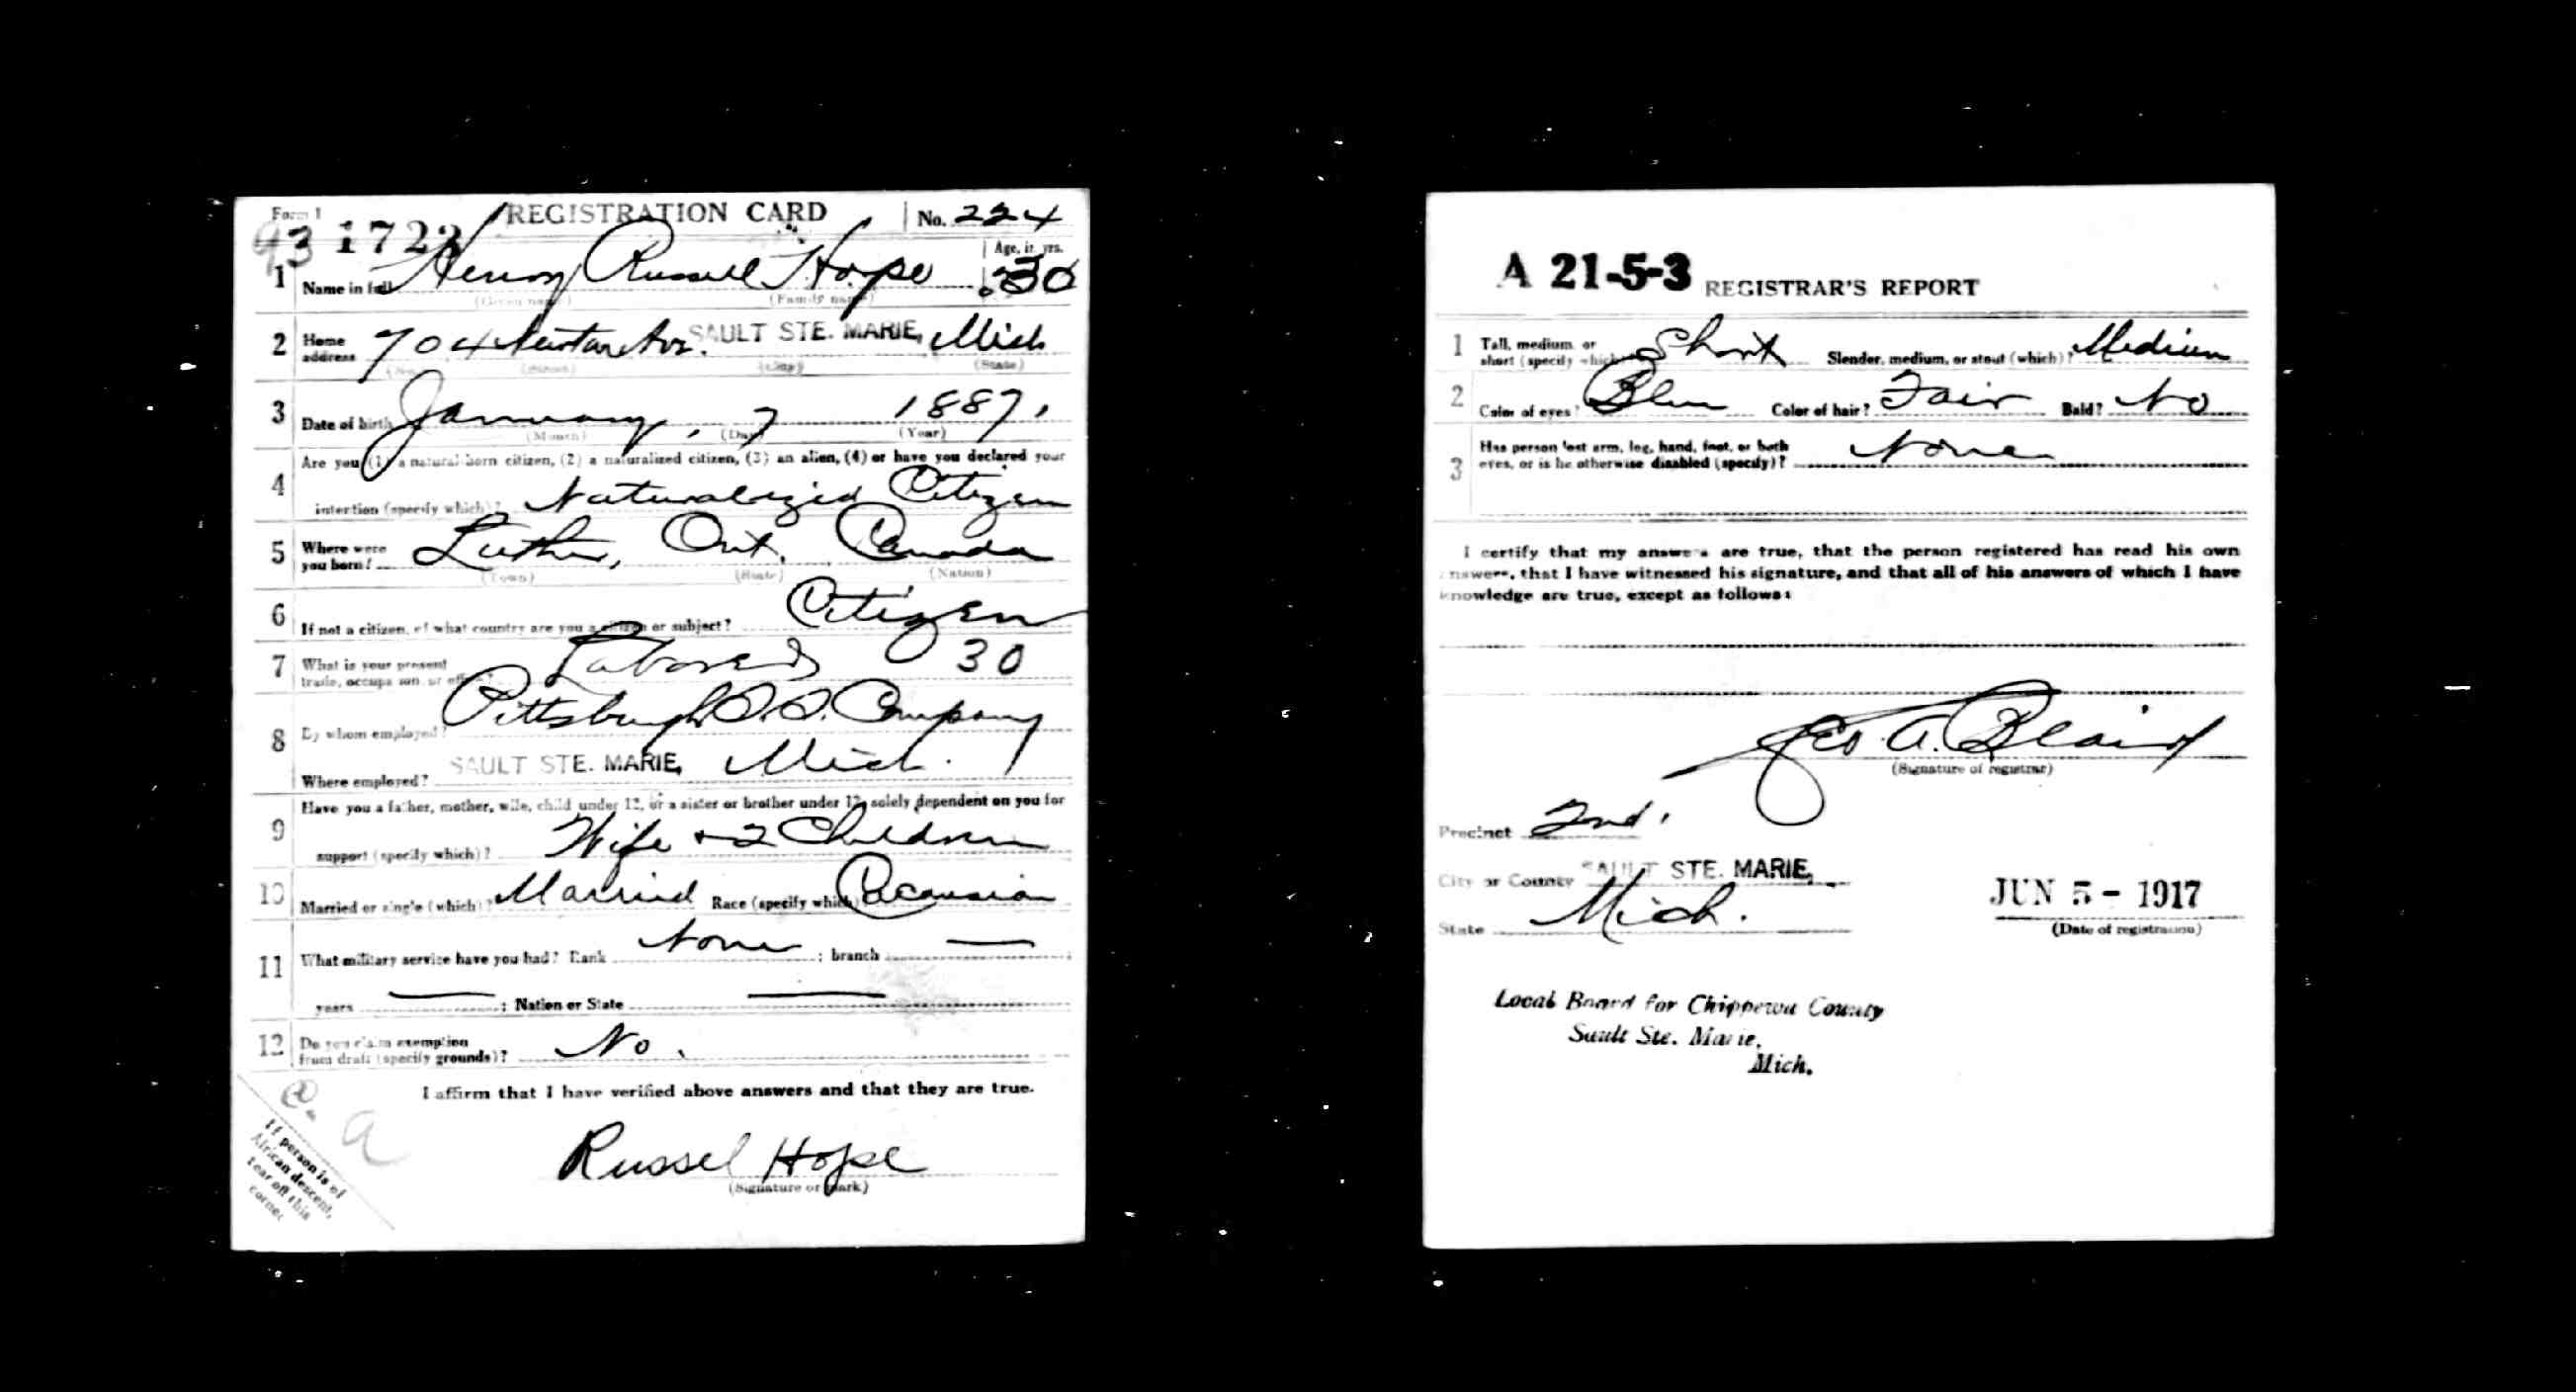 Form 1
93 1722
REGISTRATION CARD
No. 224
Age, in yrs.
1 Name in full Henry Russell Hope 30
(Given name) (Family name)
2 Home address 704 Ave. SAULT STE. MARIE, Mich
(No.) (Street) (City) (State)
3 Date of birth January, 7 1887.
(Month) (Day) (Year)
4 Are you (1) a natural-born citizen, (2) a naturalized citizen, (3) an alien, (4) or have you declared your
intention (specify which)? Naturalized Citizen
5 Where were
you born? Luther, Ont, Canada
(Town) (State) (Nation)
6 If not a citizen, of what country are you a citizen or subject? Citizen
7 What is your present
trade, occupation, or office? Laborer 30
8 By whom employed? Pittsburgh S.S. Company
Where employed? SAULT STE. MARIE, Mich.
9 Have you a father, mother, wife, child under 12, or a sister or brother under 12, solely dependent on you for
support (specify which)? Wife + 2 Children
10 Married or single (which)? Married Race (specify which)? Cacausian
11 What military service have you had? Rank None ; branch —
years — ; Nation or State —
12 Do you claim exemption
from draft (specify grounds)? No.
I affirm that I have verified above answers and that they are true.
Russel Hope
(Signature or mark)
If person is of
African descent,
tear off this
corner
A 21-5-3 REGISTRAR'S REPORT
1 Tall, medium, or
short (specify which)? Short Slender, medium, or stout (which)? Medium
2 Color of eyes? Blue Color of hair? Fair Bald? No
3 Has person lost arm, leg, hand, foot, or both
eyes, or is he otherwise disabled (specify)? None
I certify that my answers are true, that the person registered has read his own
answers, that I have witnessed his signature, and that all of his answers of which I have
knowledge are true, except as follows:
Geo. A. Blair
(Signature of registrar)
Precinct 2nd.
City or County SAULT STE. MARIE,
State Mich.
JUN 5 - 1917
(Date of registration)
Local Board for Chippewa County
Sault Ste. Marie,
Mich.